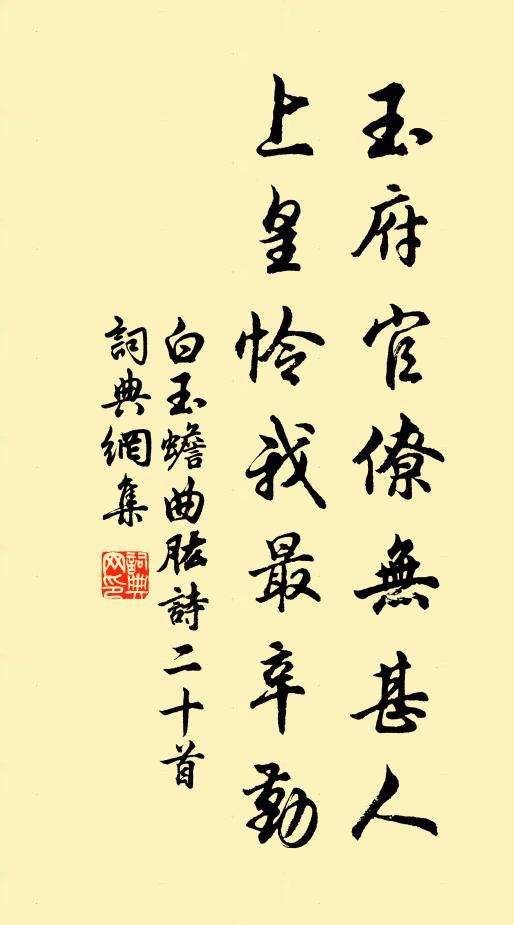 玉府官僚無甚人
上皇怜我最辛勤
白玉蟾曲肱詩二十首
詞典網集
詞典
网印